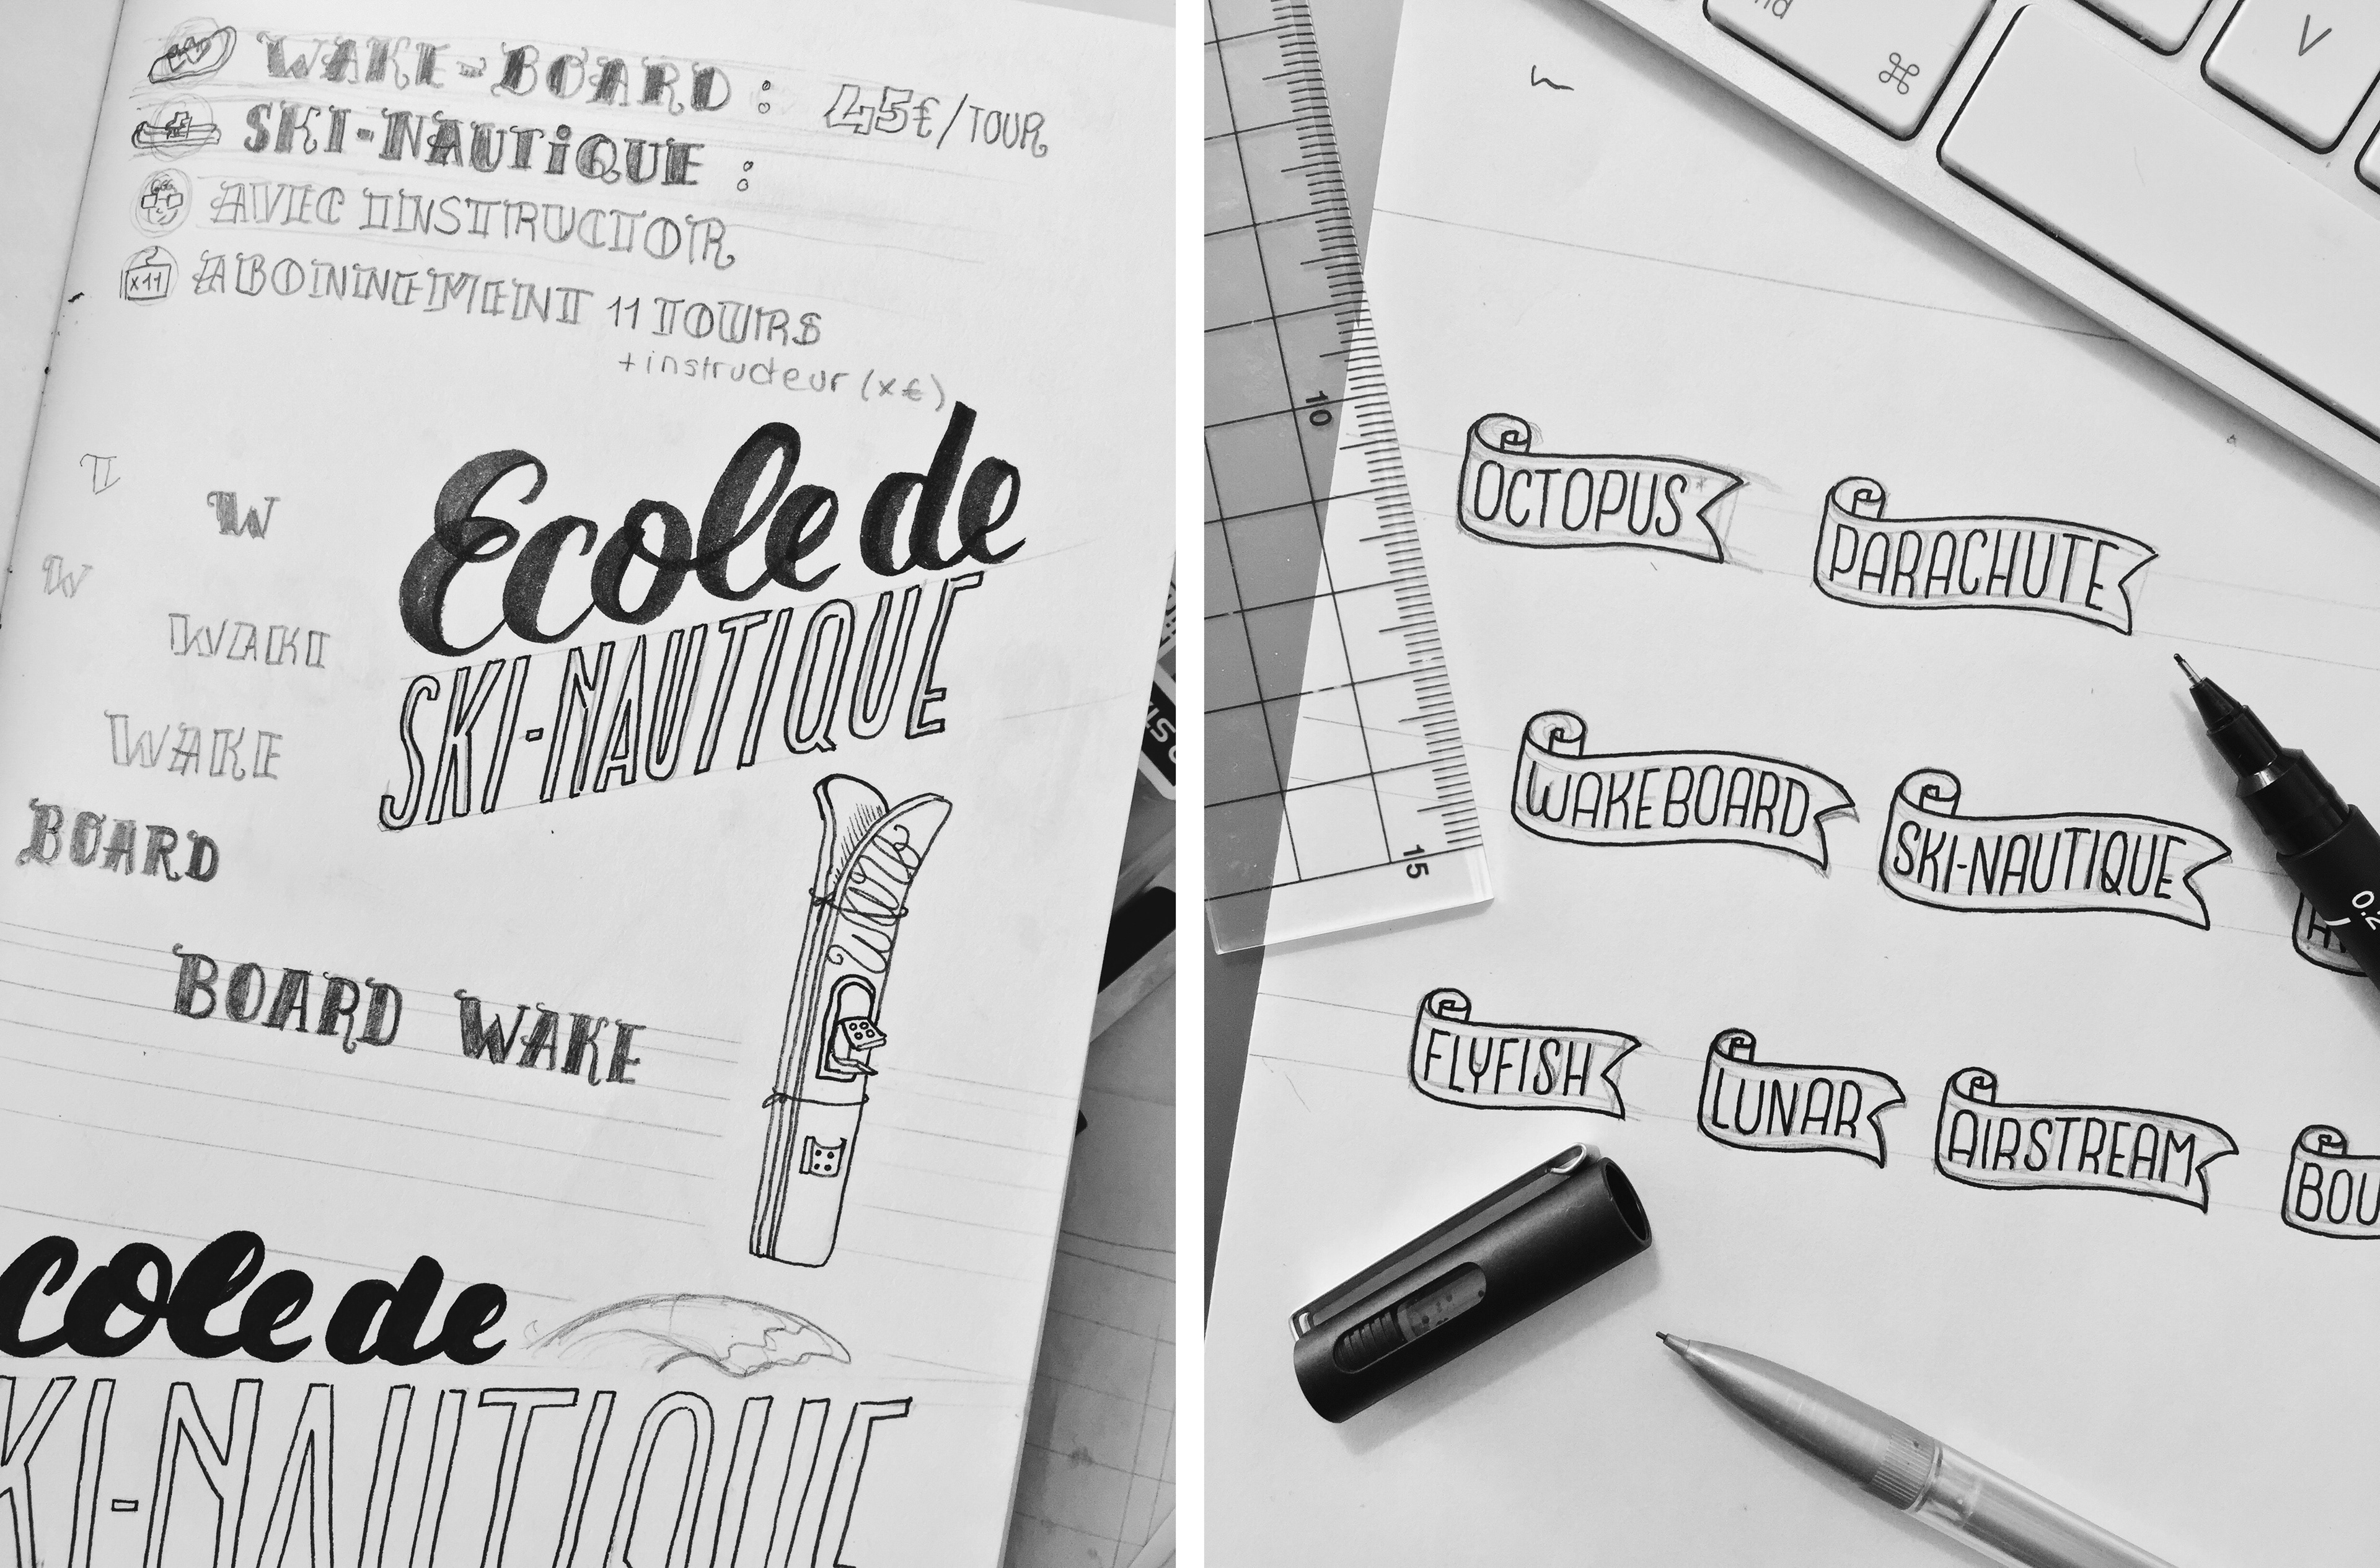 WAKE-BOARD : 45€/TOUR
SKI-NAUTiQUE :
AVEC INSTRUCTOR
x11 ABONNEMENT 11 TOURS
+instructeur (x€)
Ecole de
SKI-NAUTIQUE
T
W
W
WAKI
WAKE
BOARD
BOARD WAKE
cole de
KI-NAUTIQUE
nd
⌘
V
10
15
OCTOPUS
PARACHUTE
WAKEBOARD
SKI-NAUTIQUE
FLYFISH
LUNAR
AIRSTREAM
BOU
0.2